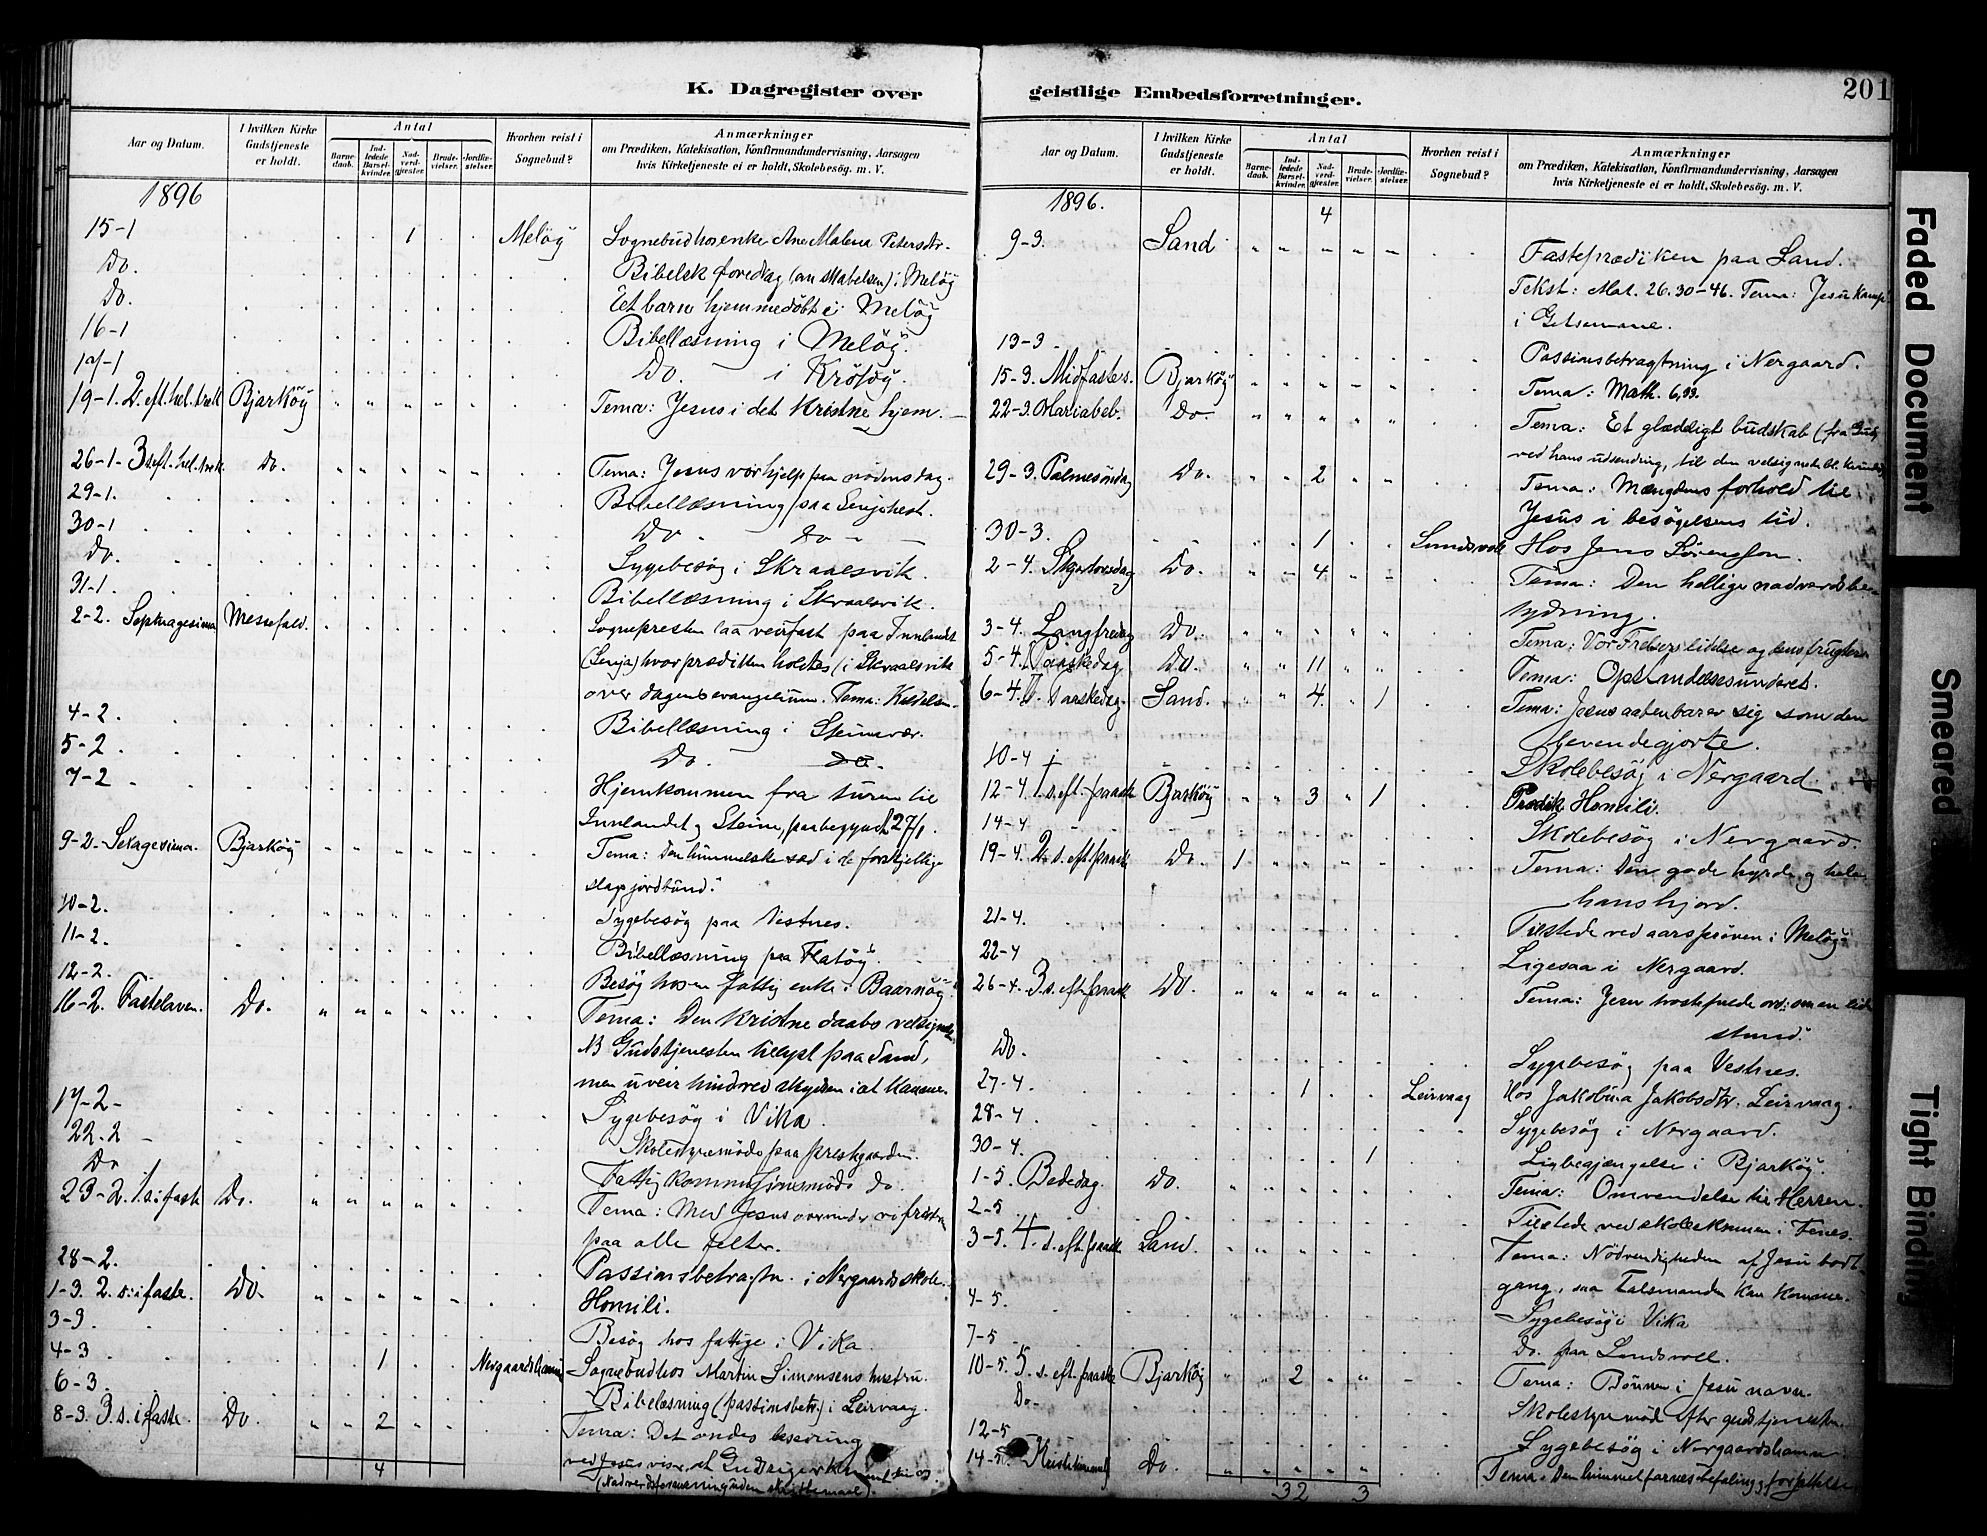 K. Dagregister over
Aar og Datum.
I hvilken Kirke Gudstjeneste er holdt.
Antal
Barnedaab.
Indledede Barselkvinder.
Nadverdgjester.
Brudevielser.
Jordfæstelser.
Hvorhen reist i Sognebud?
Anmærkninger
om Prædiken, Katekisation, Konfirmandundervisning, Aarsagen
hvis Kirketjeneste ei er holdt, Skolebesög. m. V.
1896
15-1 1 Melöy Sognebud hos enke Ane Malena Petersdtr.
Do. Bibelsk foredrag (om skabelsen) i Melöy
Do. Et barn hjemmedöbt i Melöy
16-1 Bibellæsning i Melöy.
17-1 Do. i Kröföy.
19-1. 2. s. eft. hel. trek Bjarköy Tema: Jesus i det kristne hjem.
26-1- 3 s. eft. hel. trek Do. Tema: Jesus vor hjelp paa nödens dag.
29-1. Bibellæsning paa Senjehest.
30-1 Do Do
Do. Sygebesög i Skraalsvik.
31-1. Bibellæsning i Skraalsvik.
2-2. Septuagesima Messefald. Sognepresten laa veirfast paa Innlandet
(Senja) hvor prædiken holdtes (i Skraalsvik
over dagens evangelium. Tema:
4-2. Bibellæsning i Steinavær.
5-2. Do. Do.
7-2 Hjemkommen fra turen til
Innlandet og Steine, paabegyndt 27/1.
9-2. Sexagesima. Bjarköy Tema: Den himmelske sæd i de forskjellige
slags jordbund.
10-2. Sygebesög paa Vestnes.
11-2. Bibellæsning paa Flatöy.
12-2. Besög hos en fattig enke i Baarnöy.
16-2. Fastelaven. Do. Tema: Den kristne daabs velsignelse
NB Gudstjenesten tillyst paa Sand,
men uveir hindred skydsen i at komme.
17-2- Sygebesög i Vika.
22.2 Skolestyremöde paa prestgaarden.
Do Fattigkommissionsmöde do.
23-2. 1. s. i faste Do. Tema: Med Jesus overvinder vi fristeren
paa alle felter.
28-2. Passionsbetragtn. i Nergaards skole.
1-3. 2. s. i faste. Do. Homili.
3-3. Besög hos fattige i Vika.
4-3 1 Nergaardshamn Sognebud hos Martin Simonsens hustru.
6-3. Bibelæsning (passionsbetr.) i Leirvaag.
8-3. 3. s. i faste. Do. 2 Tema: Det ondes
ved Jesus viser, at Guds rige er kommet til os
(Nadverdsforvaltning uden skriftemaal).
4
geistlige Embedsforretninger.
201
Aar og Datum.
I hvilken Kirke Gudstjeneste er holdt.
Antal
Barnedaab.
Indledede Barselkvinder.
Nadverdgjester.
Brudevielser.
Jordfæstelser.
Hvorhen reist i Sognebud?
Anmærkninger
om Prædiken, Katekisation, Konfirmandundervisning, Aarsagen
hvis Kirketjeneste ei er holdt, Skolebesög. m. V.
1896.
4
9-3. Sand Fasteprædiken paa Sand.
Tekst: Mat. 26.30-46. Tema: Jesu kamp
i Getsemane.
13-3 Passionsbetragtning i Nergaard.
15-3. Midfastes. Bjarköy Tema: Math. 6,33.
22-3. Mariabeb. Do. Tema: Et glædeligt budskab (fra Gud,
ved hans udsending, til den velsignede bl. kvinder
29-3. Palmesöndag Do. 2 Tema: Mængdens forhold til
Jesus i besögelsens tid.
30-3. 1 Sundsvoll Hos Jens Sörensson.
2-4. Skjærtorsdag Do. 4 Tema: Den hellige nadverds be-
tydning.
3-4. Langfredag Do. Tema: Vor Frelsers lidelse og dens frugter.
5-4. 1. Paaskedag. Do. 11 Tema: Opstandelsesunderet.
6-4. 2. Paaskedag. Sand. 4. 1 Tema: Jesus aabenbarer sig som den
levendegjorte.
10-4 Skolebesög i Nergaard
12-4. 1. s. eft. paask Bjarköy 3 1 Prædik. Homili.
14-4 Skolebesög i Nergaard.
19-4. 2. s. eft. paask Do. 1 Tema: Den gode hyrde og hele
hans hjord.
21-4. Tilstede ved aarspröven i Melöy
22-4 Ligesaa i Nergaard.
26-4. 3. s. eft. paask Do. Tema: Jesu trostefulde ord: om en liden
stund.
Do. Sygebesög paa Vestnes.
27-4. 1 Leirvaag Hos Jakobina Jakobsdtr. Leirvaag.
28-4. Sygebesög i Nergaard.
30-4. 1 Ligbegjængelse i Bjarköy.
1-5. Bededag. Do. Tema: Omvendelse til Herren.
2-5 Tilstede ved skoleeksamen i Fenes.
3-5. 4. s. eft. paask Sand. Tema: Nödvendigheden af Jesu bort-
gang, saa Talsmanden kan komme.
4-5. Sygebesög i Vika
7-5 Do. paa Sundsvoll.
10-5. 5. s. eft. paaske Bjarköy 2 Tema: Bönnen i Jesu navn.
Do. Skolestyremöd. efter gudstjenesten.
12-5 Sygebesög i Nergaardshamn
14-5. Kristi himmelf. Do. Tema: Den himmelfarnes befaling og forjættelse
32 3
Faded Document
Smeared
Tight Binding